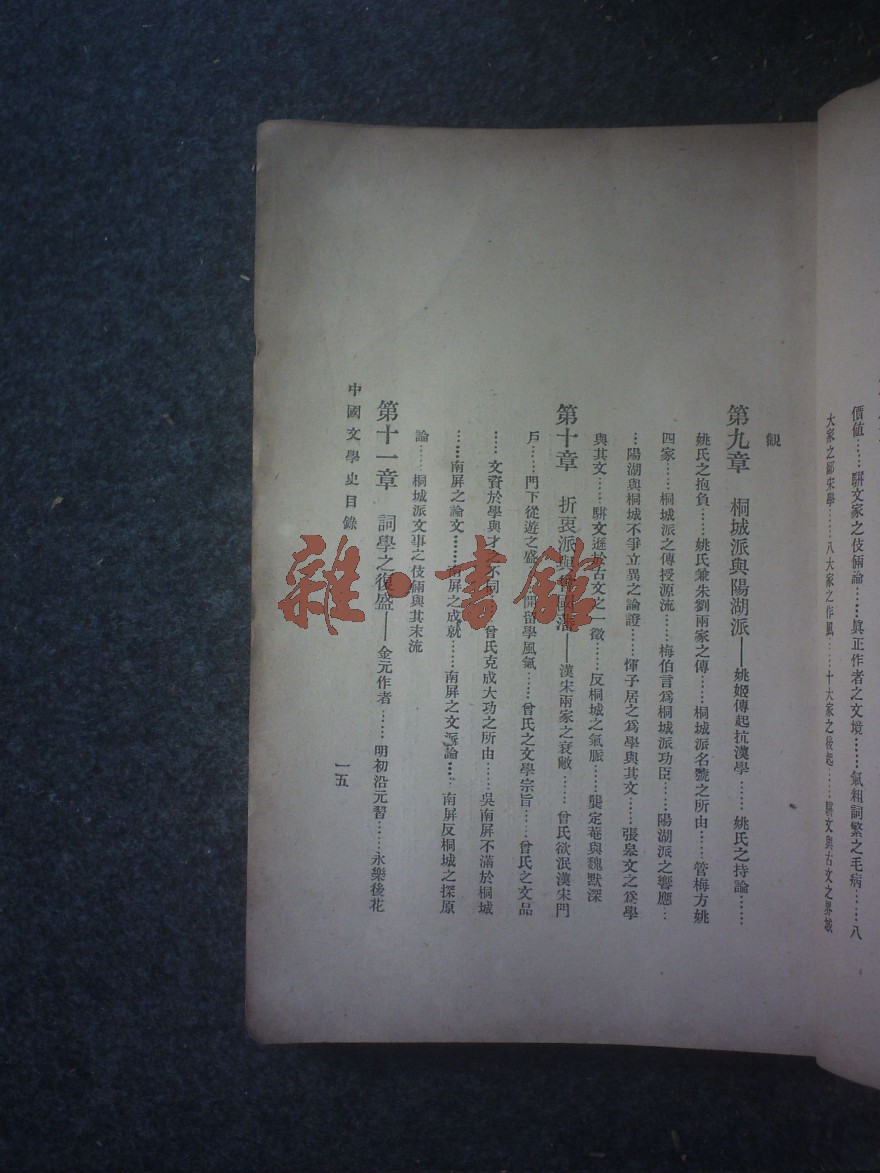 價値……駢文家之伎倆論……眞正作者之文境……氣粗詞繁之毛病……八
大家之鄙宋學……八大家之作風……十大家之後起……駢文與古文之界域
觀
第九章　桐城派與陽湖派——姚姬傳起抗漢學……姚氏之持論……
姚氏之抱負……姚氏兼朱劉兩家之傳……桐城派名號之所由……管梅方姚
四家……桐城派之傳授源流……梅伯言爲桐城派功臣……陽湖派之響應…
…陽湖與桐城不爭立異之論證……惲子居之爲學與其文……張皋文之爲學
與其文……駢文遜於古文之一徵……反桐城之氣脈……龔定菴與魏默深
第十章　折衷派與曾國藩——漢宋兩家之衰敝……曾氏欲泯漢宋門
戶……門下從遊之盛……開留學風氣……曾氏之文學宗旨……曾氏之文品
……文資於學與才之不同……曾氏克成大功之所由……吳南屏不滿於桐城
……南屏之論文……南屏之成就……南屏之文派論……南屏反桐城之探原
論……桐城派文事之伎倆與其末流
第十一章　詞學之復盛——金元作者……明初沿元習……永樂後花
中國文學史目錄
一五
雜·書館